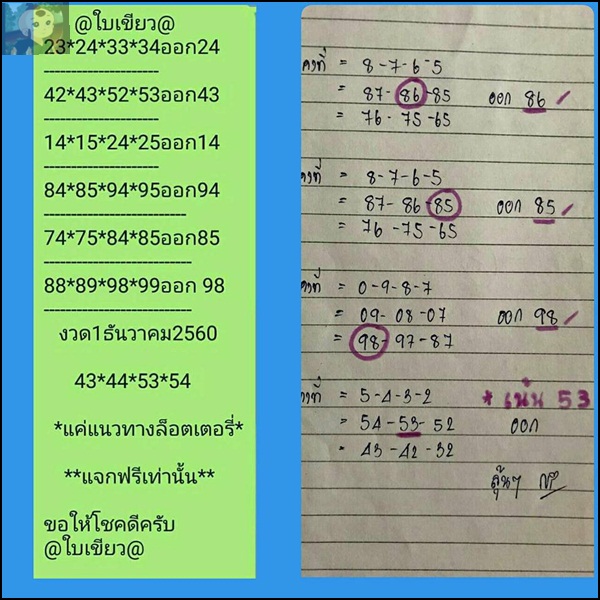 @ใบเขียว@
23*24*33*34ออก24
--------------------
42*43*52*53ออก43
--------------------
14*15*24*25ออก14
--------------------
84*85*94*95ออก94
-------------------------
74*75*84*85ออก85
--------------------------
88*89*98*99ออก 98
--------------------------
งวด1ธันวาคม2560
43*44*53*54
*แค่แนวทางล็อตเตอรี่*
**แจกฟรีเท่านั้น**
ขอให้โชคดีครับ
@ใบเขียว@
= 8-7-6-5
= 87-86-85 ออก 86
= 76-75-65
= 8-7-6-5
= 87-86-85 ออก 85
= 76-75-65
= 0-9-8-7
= 09-08-07 ออก 98
= 98-97-87
= 5-4-3-2 * เน้น 53
= 54-53-52 ออก
= 43-42-32
ลุ้นๆ